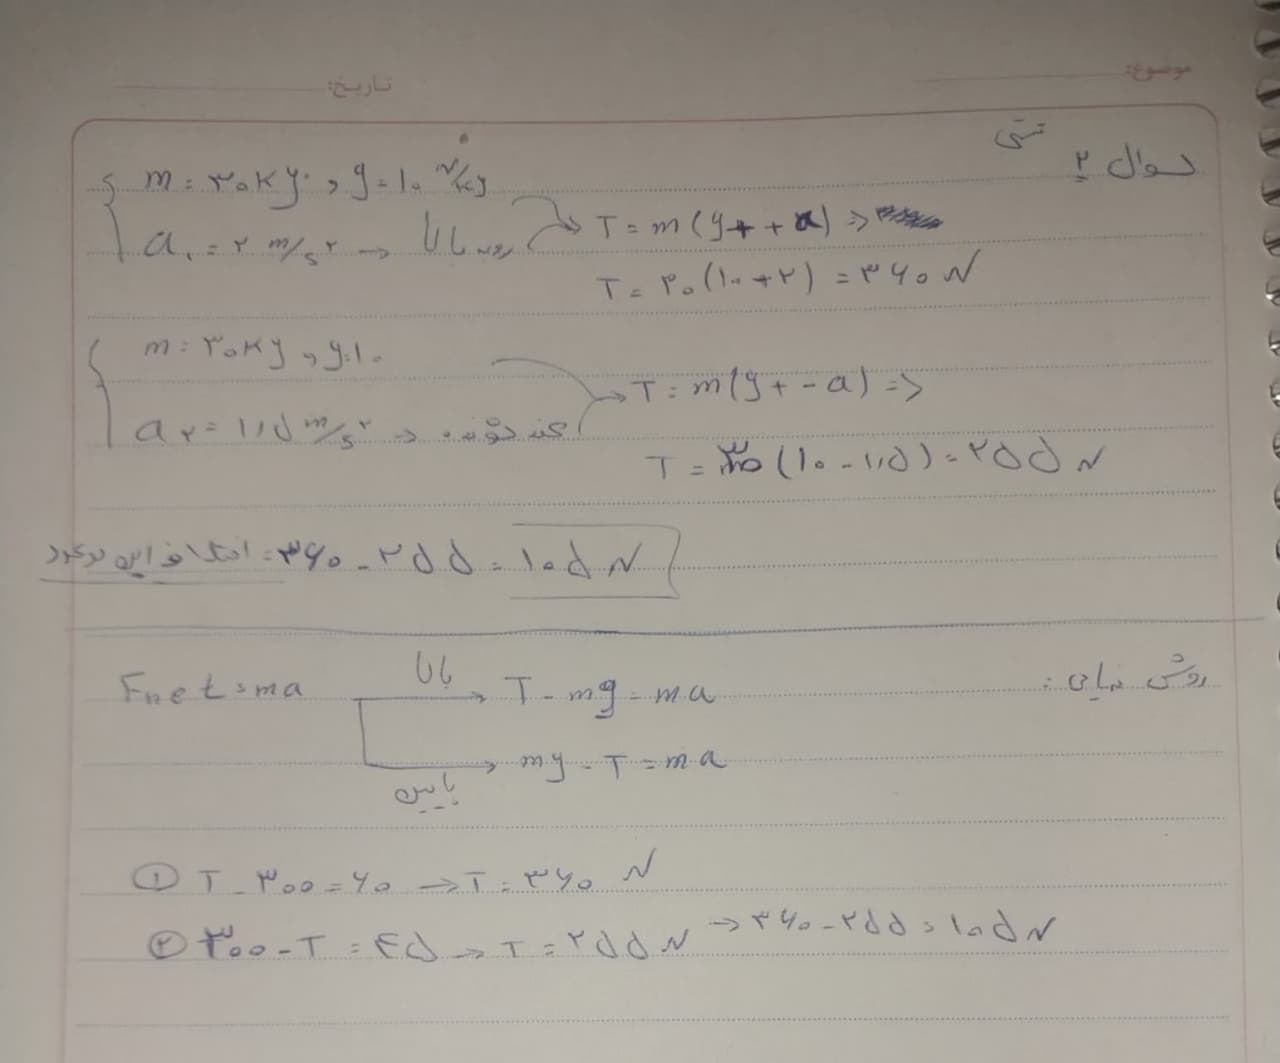 موضوع:
تاریخ:
سوال ۲ تستی
m = ۳۰ kg , g = ۱۰ N/kg
a₁ = ۲ m/s² → رو به بالا
T = m(g + + a) ⇒
T = ۳۰(۱۰ + ۲) = ۳۶۰ N
m = ۳۰ kg , g = ۱۰
a₂ = ۱٫۵ m/s² → کند شونده
T = m(g + - a) ⇒
T = ۳۰(۱۰ - ۱٫۵) = ۲۵۵ N
۳۶۰ - ۲۵۵ = ۱۰۵ N = اختلاف این دو
روش
Fnet = ma
بالا → T - mg = ma
پایین → mg - T = ma
① T - ۳۰۰ = ۶۰ → T = ۳۶۰ N
② ۳۰۰ - T = ۴۵ → T = ۲۵۵ N → ۳۶۰ - ۲۵۵ = ۱۰۵ N